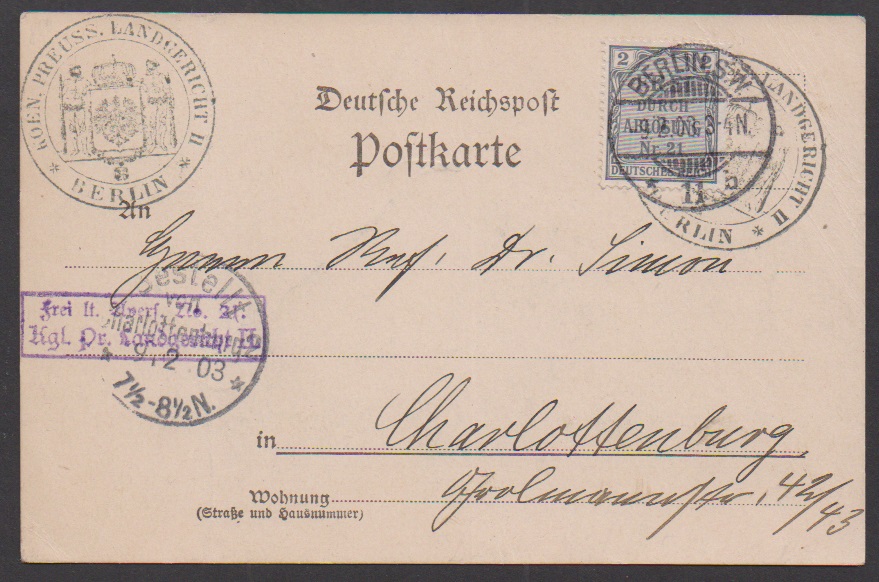 KOEN. PREUSS. LANDGERICHT II
* BERLIN *
8
Deutsche Reichspost
Postkarte
2
DURCH
ABLÖSUNG
Nr. 21
DEUTSCHES REICH
BERLIN S.W.
9.2.03. 3-4N.
* 11 b
LANDGERICHT II
* BERLIN *
An
Herrn Ref. Dr. Simon
Bestellt
vom
Charlottenburg
9.2.03
* 7½-8½N. *
Frei lt. Avers. No. 21.
Kgl. Pr. Landgericht II.
in Charlottenburg
Wohnung Grolmannstr. 42/43
(Straße und Hausnummer)